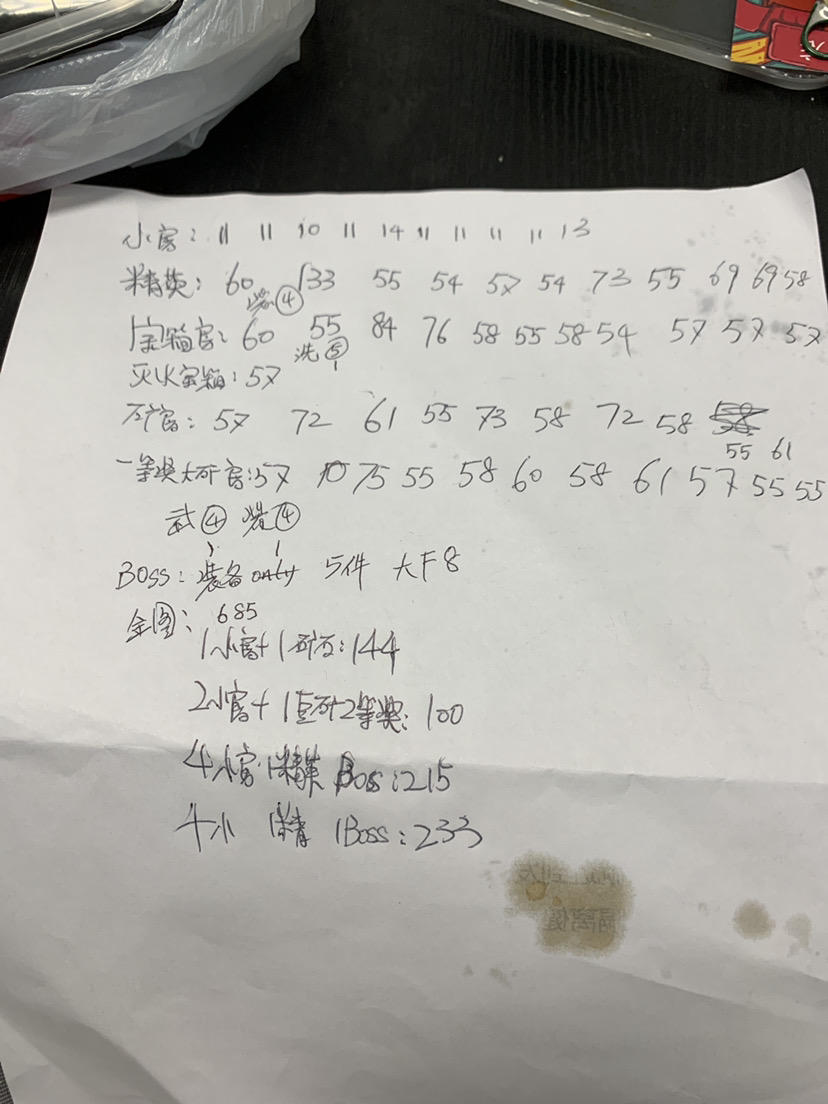 小官: 11 11 10 11 14 11 11 11 11 13
精英: 60 133 55 54 57 54 73 55 69 69 58
装④
宝箱官: 60 55 84 76 58 55 58 54 57 57 57
洗⑤
灭火宝箱: 57
石矿官: 57 72 61 55 73 58 72 58
55 61
一等奖大矿官: 57 75 55 58 60 58 61 57 55 55
武④ 装④
BOSS: 装备only 5件 大F8
金图: 685
1小官+1矿石: 144
2小官+1巨矿2等奖: 100
4小官 1精英 Boss: 215
4小 1精 1Boss: 233